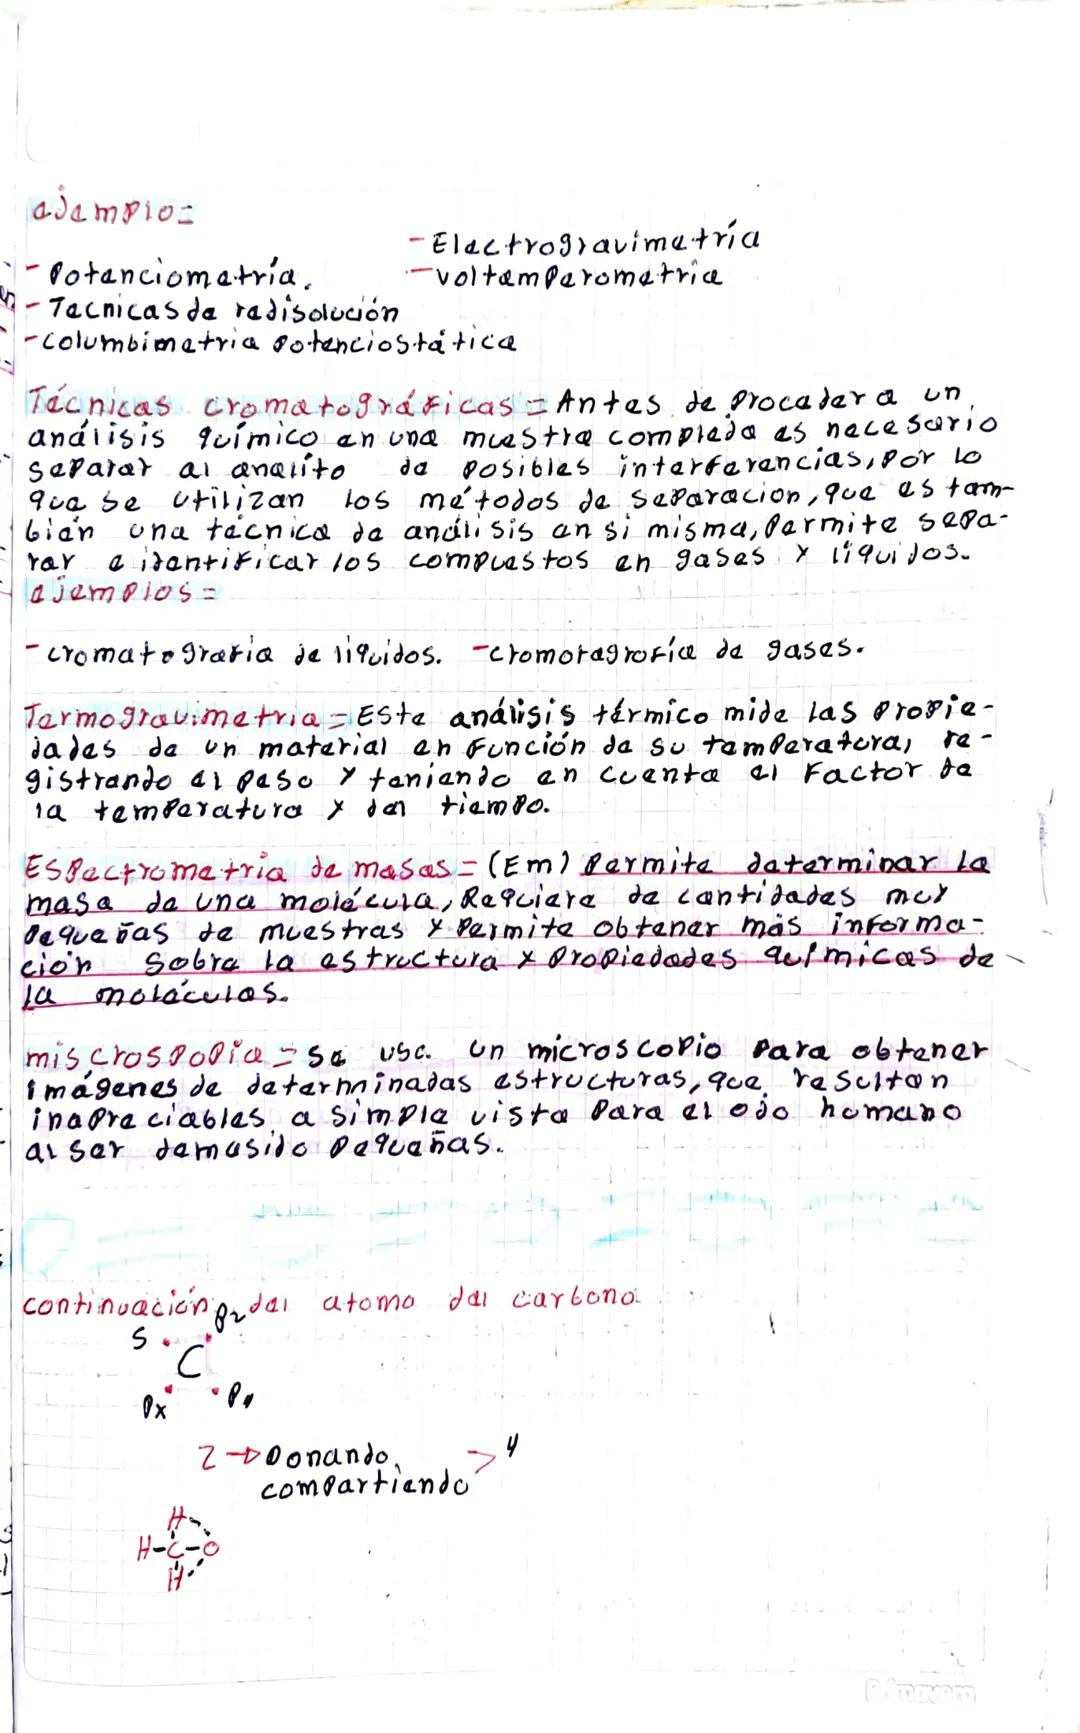 ejemplo=
- Electrogravimetría
- Potenciometría.
- voltamperometria
- Tecnicas de redisolución
- columbimetria potenciostática
Técnicas cromatográficas = Antes de proceder a un
análisis químico en una muestra compleja es necesario
separar al analito de posibles interferencias, por lo
que se utilizan los métodos de separacion, que es tam-
bién una técnica de análisis en si misma, permite sepa-
rar e identificar los compuestos en gases y líquidos.
ejemplos=
- cromatografia de liquidos. - cromoragrofía de gases.
Termogravimetria = Este análisis térmico mide las propie-
dades de un material en función de su temperatura, re-
gistrando el peso y teniendo en cuenta el factor de
la temperatura y del tiempo.
Espectrometria de masas = (Em) permite determinar la
masa de una molécula, Requiere de cantidades muy
pequeñas de muestras y permite obtener más informa-
ción sobre la estructura y propiedades químicas de
la moléculas.
miscrospopia = se usa un microscopio para obtener
imágenes de determinadas estructuras, que resultan
inapreciables a simple vista para él ojo humano
al ser demasido pequeñas.
continuación del atomo del carbono
S
C
Px
2 → Donando > 4
compartiendo
H
H-C-O
H
Primavera